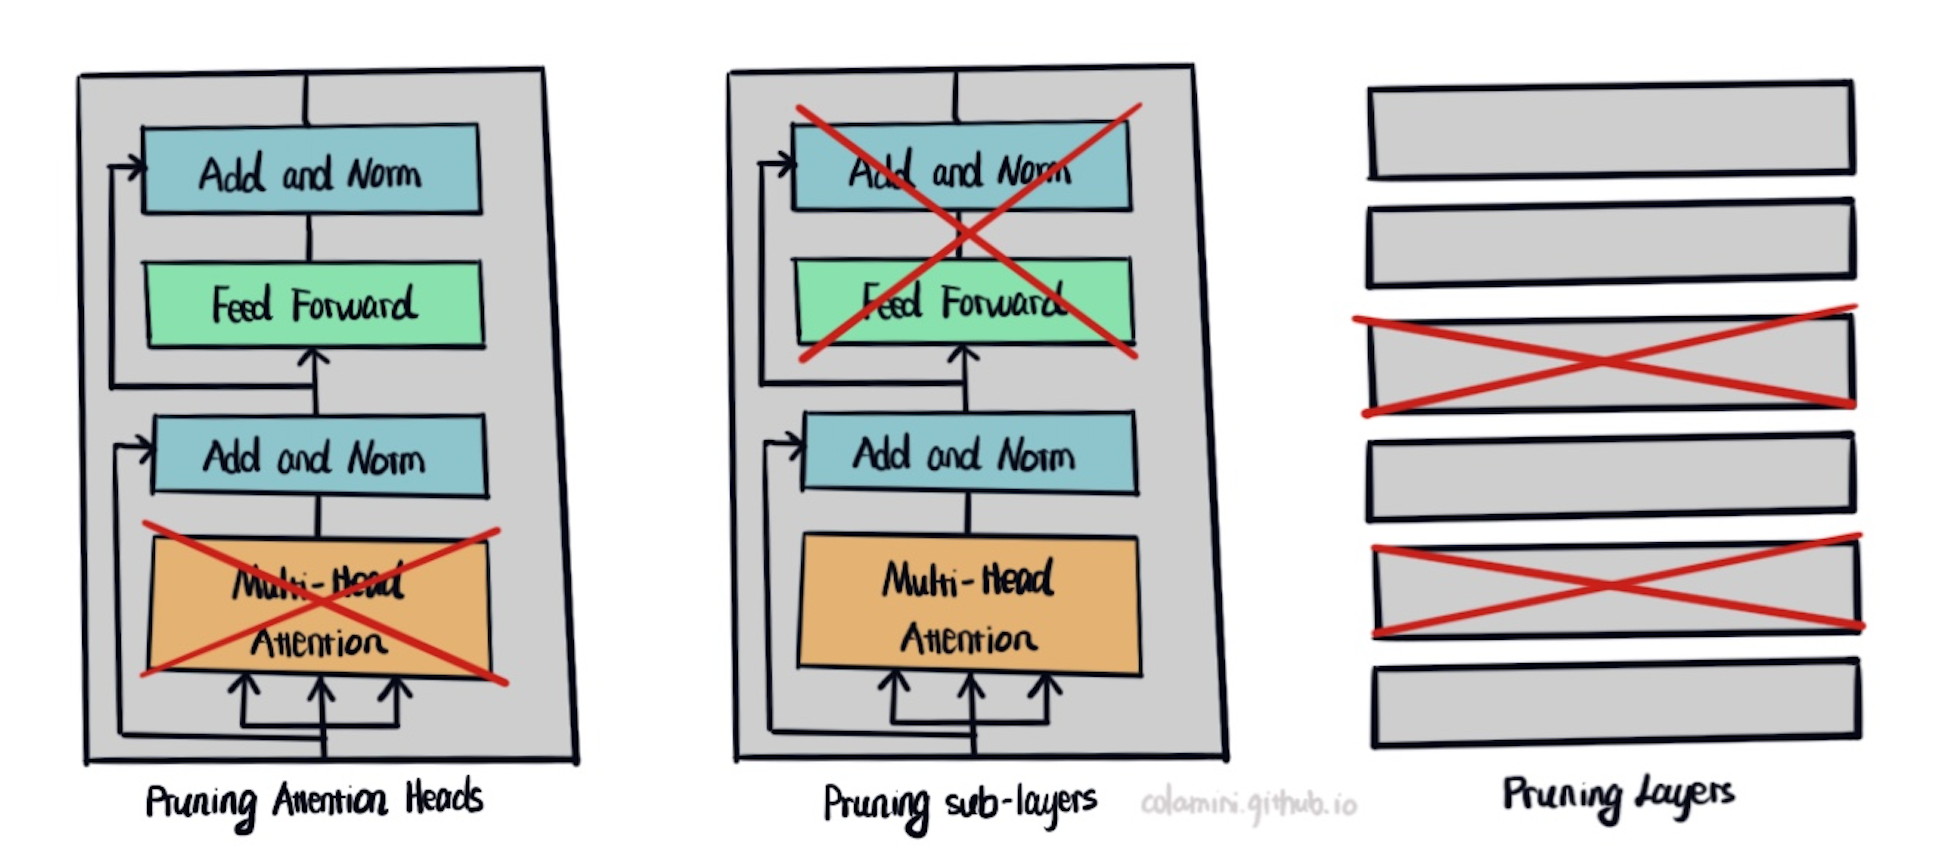 Add and Norm
Feed Forward
Add and Norm
Multi-Head
Attention
Pruning Attention Heads
Add and Norm
Feed Forward
Add and Norm
Multi-Head
Attention
Pruning sub-layers
colamini.github.io
Pruning Layers